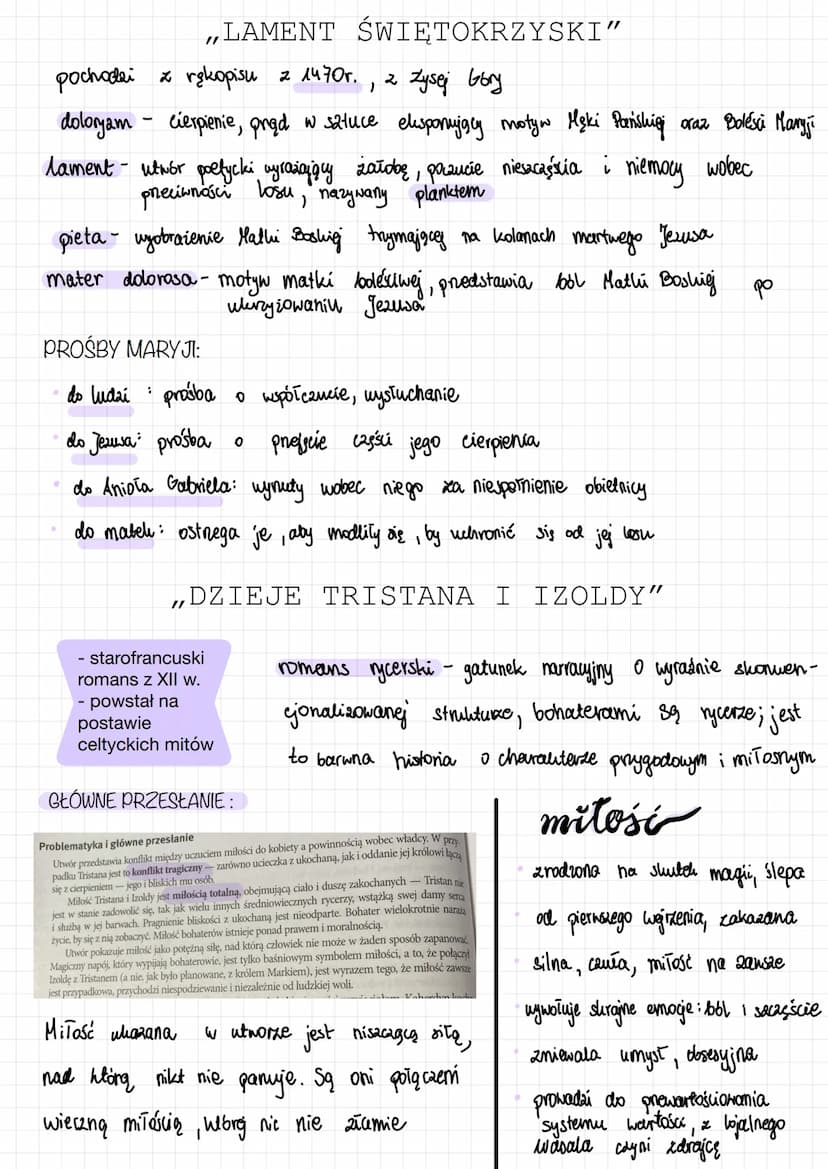 „LAMENT ŚWIĘTOKRZYSKI”
pochodzi z rękopisu z 1470r., z Łysej Góry
doloryzm - cierpienie, prąd w sztuce eksponujący motyw Męki Pańskiej oraz Boleści Maryji
lament - utwór poetycki wyrażający żałobę, poczucie nieszczęścia i niemocy wobec
przeciwności losu, nazywany planktem
pieta - wyobrażenie Matki Boskiej trzymającej na kolanach martwego Jezusa
mater dolorosa - motyw matki boleściwej, przedstawia ból Matki Boskiej po
ukrzyżowaniu Jezusa
PROŚBY MARYJI:
do ludzi : prośba o współczucie, wysłuchanie
do Jezusa: prośba o przejęcie części jego cierpienia
do Anioła Gabriela: wyrzuty wobec niego za niespełnienie obietnicy
do matek: ostrzega je, aby modliły się, by uchronić się od jej losu
„DZIEJE TRISTANA I IZOLDY”
- starofrancuski
romans z XII w.
- powstał na
postawie
celtyckich mitów
romans rycerski - gatunek narracyjny o wyraźnie skonwen-
cjonalizowanej strukturze, bohaterami są rycerze; jest
to barwna historia o charakterze przygodowym i miłosnym
GŁÓWNE PRZESŁANIE :
Problematyka i główne przesłanie
Utwór przedstawia konflikt między uczuciem miłości do kobiety a powinnością wobec władcy. W przy-
padku Tristana jest to konflikt tragiczny — zarówno ucieczka z ukochaną, jak i oddanie jej królowi łączą
się z cierpieniem — jego i bliskich mu osób.
Miłość Tristana i Izoldy jest miłością totalną, obejmującą ciało i duszę zakochanych — Tristan nie
jest w stanie zadowolić się, tak jak wielu innych średniowiecznych rycerzy, wstążką swej damy serca
i służbą w jej barwach. Pragnienie bliskości z ukochaną jest nieodparte. Bohater wielokrotnie naraża
życie, by się z nią zobaczyć. Miłość bohaterów istnieje ponad prawem i moralnością.
Utwór pokazuje miłość jako potężną siłę, nad którą człowiek nie może w żaden sposób zapanować.
Magiczny napój, który wypijają bohaterowie, jest tylko baśniowym symbolem miłości, a to, że połączył
Izoldę z Tristanem (a nie, jak było planowane, z królem Markiem), jest wyrazem tego, że miłość zawsze
jest przypadkowa, przychodzi niespodziewanie i niezależnie od ludzkiej woli.
Miłość ukazana w utworze jest niszczącą siłą,
nad którą nikt nie panuje. Są oni połączeni
wieczną miłością, której nic nie złamie
miłość
zrodzona na skutek magii, ślepa
od pierwszego wejrzenia, zakazana
silna, czuła, miłość na zawsze
wywołuje skrajne emocje: ból i szczęście
zniewala umysł, obsesyjna
prowadzi do przewartościowania
systemu wartości, z lojalnego
wasala czyni zdrajcę